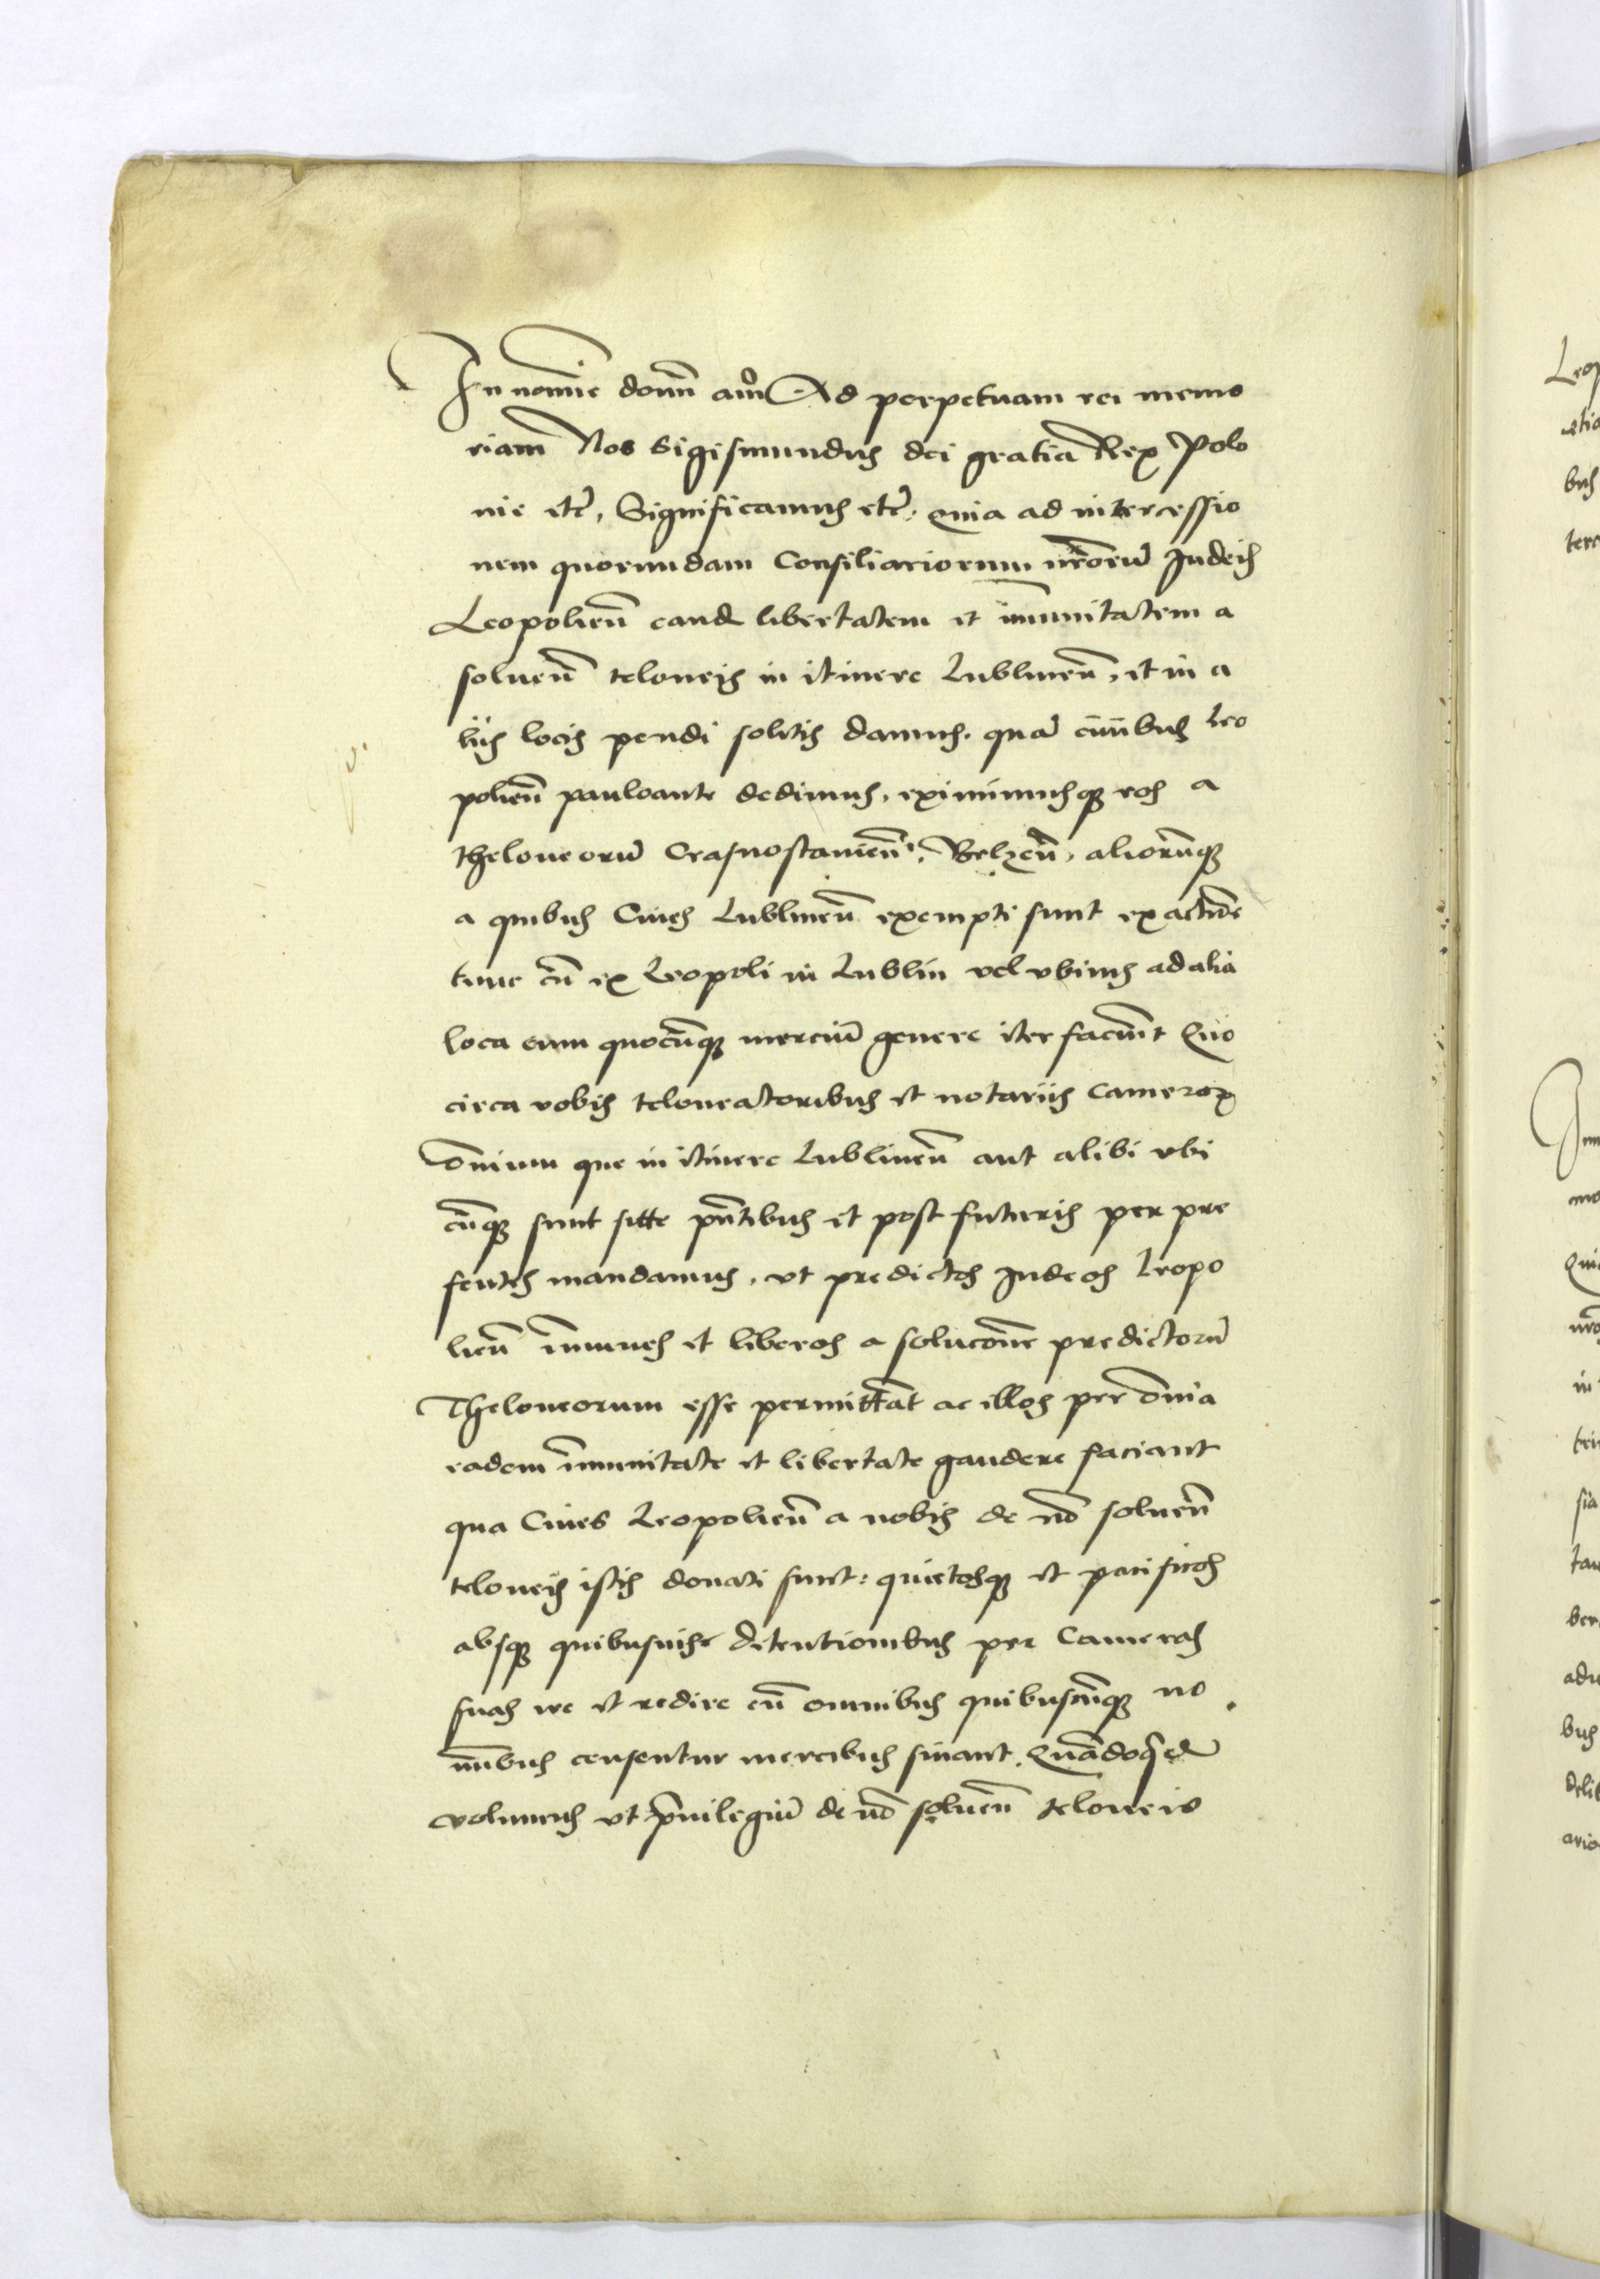 In nomie domi am Ad perpetuam rei memo
riam Nos Sigismundus dei gratia Rex Polo
nie etc, Significamus etc: quia ad intercessio
nem quorundam Consiliariorum nrorum Judeis
Leopolien eand libertatem et imunitatem a
soluen teloneis in itinere Lublinen, et in a
liis locis pendi solitis damus, qua ciuibus Leo
polien pauloante dedimus, eximimusq eos a
theloneoru Crasnostauien, Belzen, aliorumq
a quibus Ciues Lublinen exempti sunt exactioe
tunc cu ex Leopoli in Lublin vel vbiuis ad alia
loca cum quocumq merciu genere iter faciunt Quo
circa vobis teloneatoribus et notariis Camerar
omnium que in itinere Lublinen aut alibi vbi
cumq sunt site pntibus et post futuris per pre
sentes mandamus, vt predictos Judeos Leopo
lien imunes et liberos a solucone predictoru
Theloneorum esse permittat ac illos per omia
eadem imunitate et libertate gaudere faciant
qua Ciues Leopolien a nobis de no soluen
teloneis istis donati sunt: quietosq et pacificos
absq quibusuis detentionibus per Cameras
suas ire et redire cu omnibus quibuscumq no
minibus censentur mercibus sinant. Quadoqed
volumus vt priuilegiu de no soluen teloneis